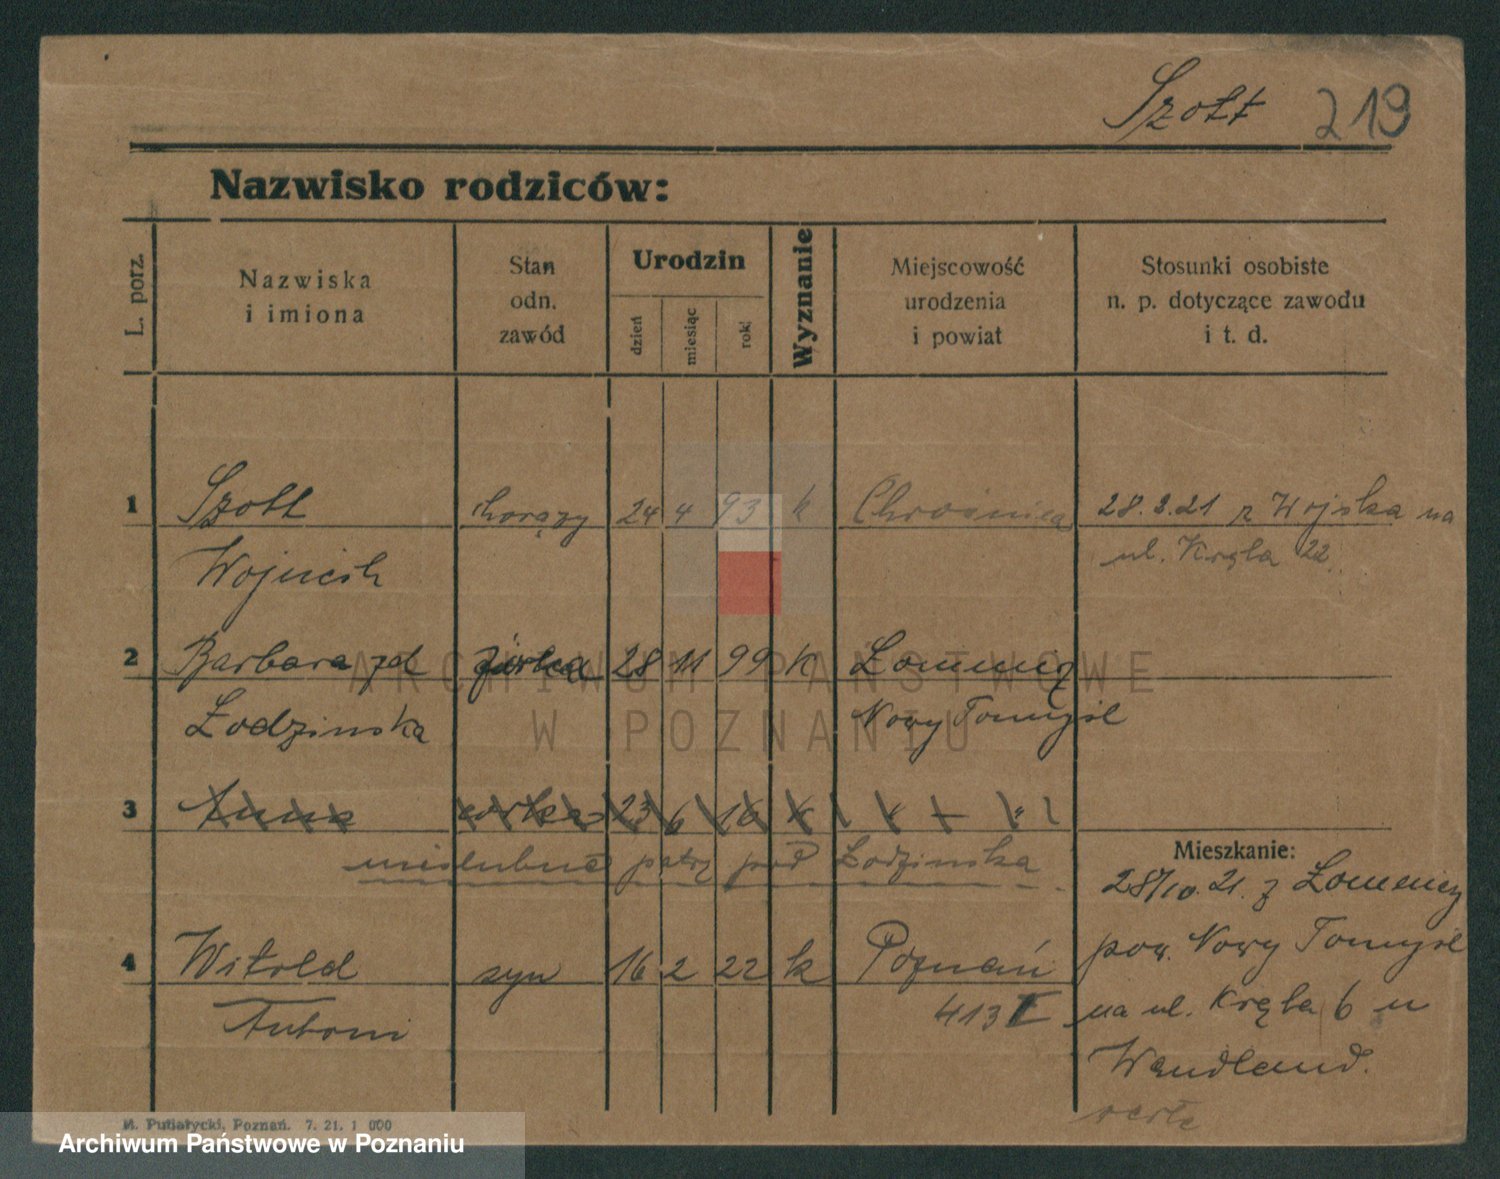 Szott 219
Nazwisko rodziców:
L. porz.
Nazwiska
i imiona
Stan
odn.
zawód
Urodzin
dzień
miesiąc
rok
Wyznanie
Miejscowość
urodzenia
i powiat
Stosunki osobiste
n. p. dotyczące zawodu
i t. d.
1 Szott chorąży 24 4 93 k Chrośnica 28.2.21 z Wojska na
Wojciech ul. Kręta 22
2 Barbara zd 28 11 99 k Łomnicy
Łodzinska Nowy Tomyśl
3 Anna córka 23 6 16 k
nieślubne patrz pod Łodzinska
Mieszkanie:
28/10.21. z Łomnicy
4 Witold syn 16 2 22 k Poznań pow. Nowy Tomyśl
Antoni 413 na ul. Kręta 6 u
Wendland.
verte
M. Putiatycki, Poznań. 7. 21. 1 000
ARCHIWUM PAŃSTWOWE
W POZNANIU
Archiwum Państwowe w Poznaniu